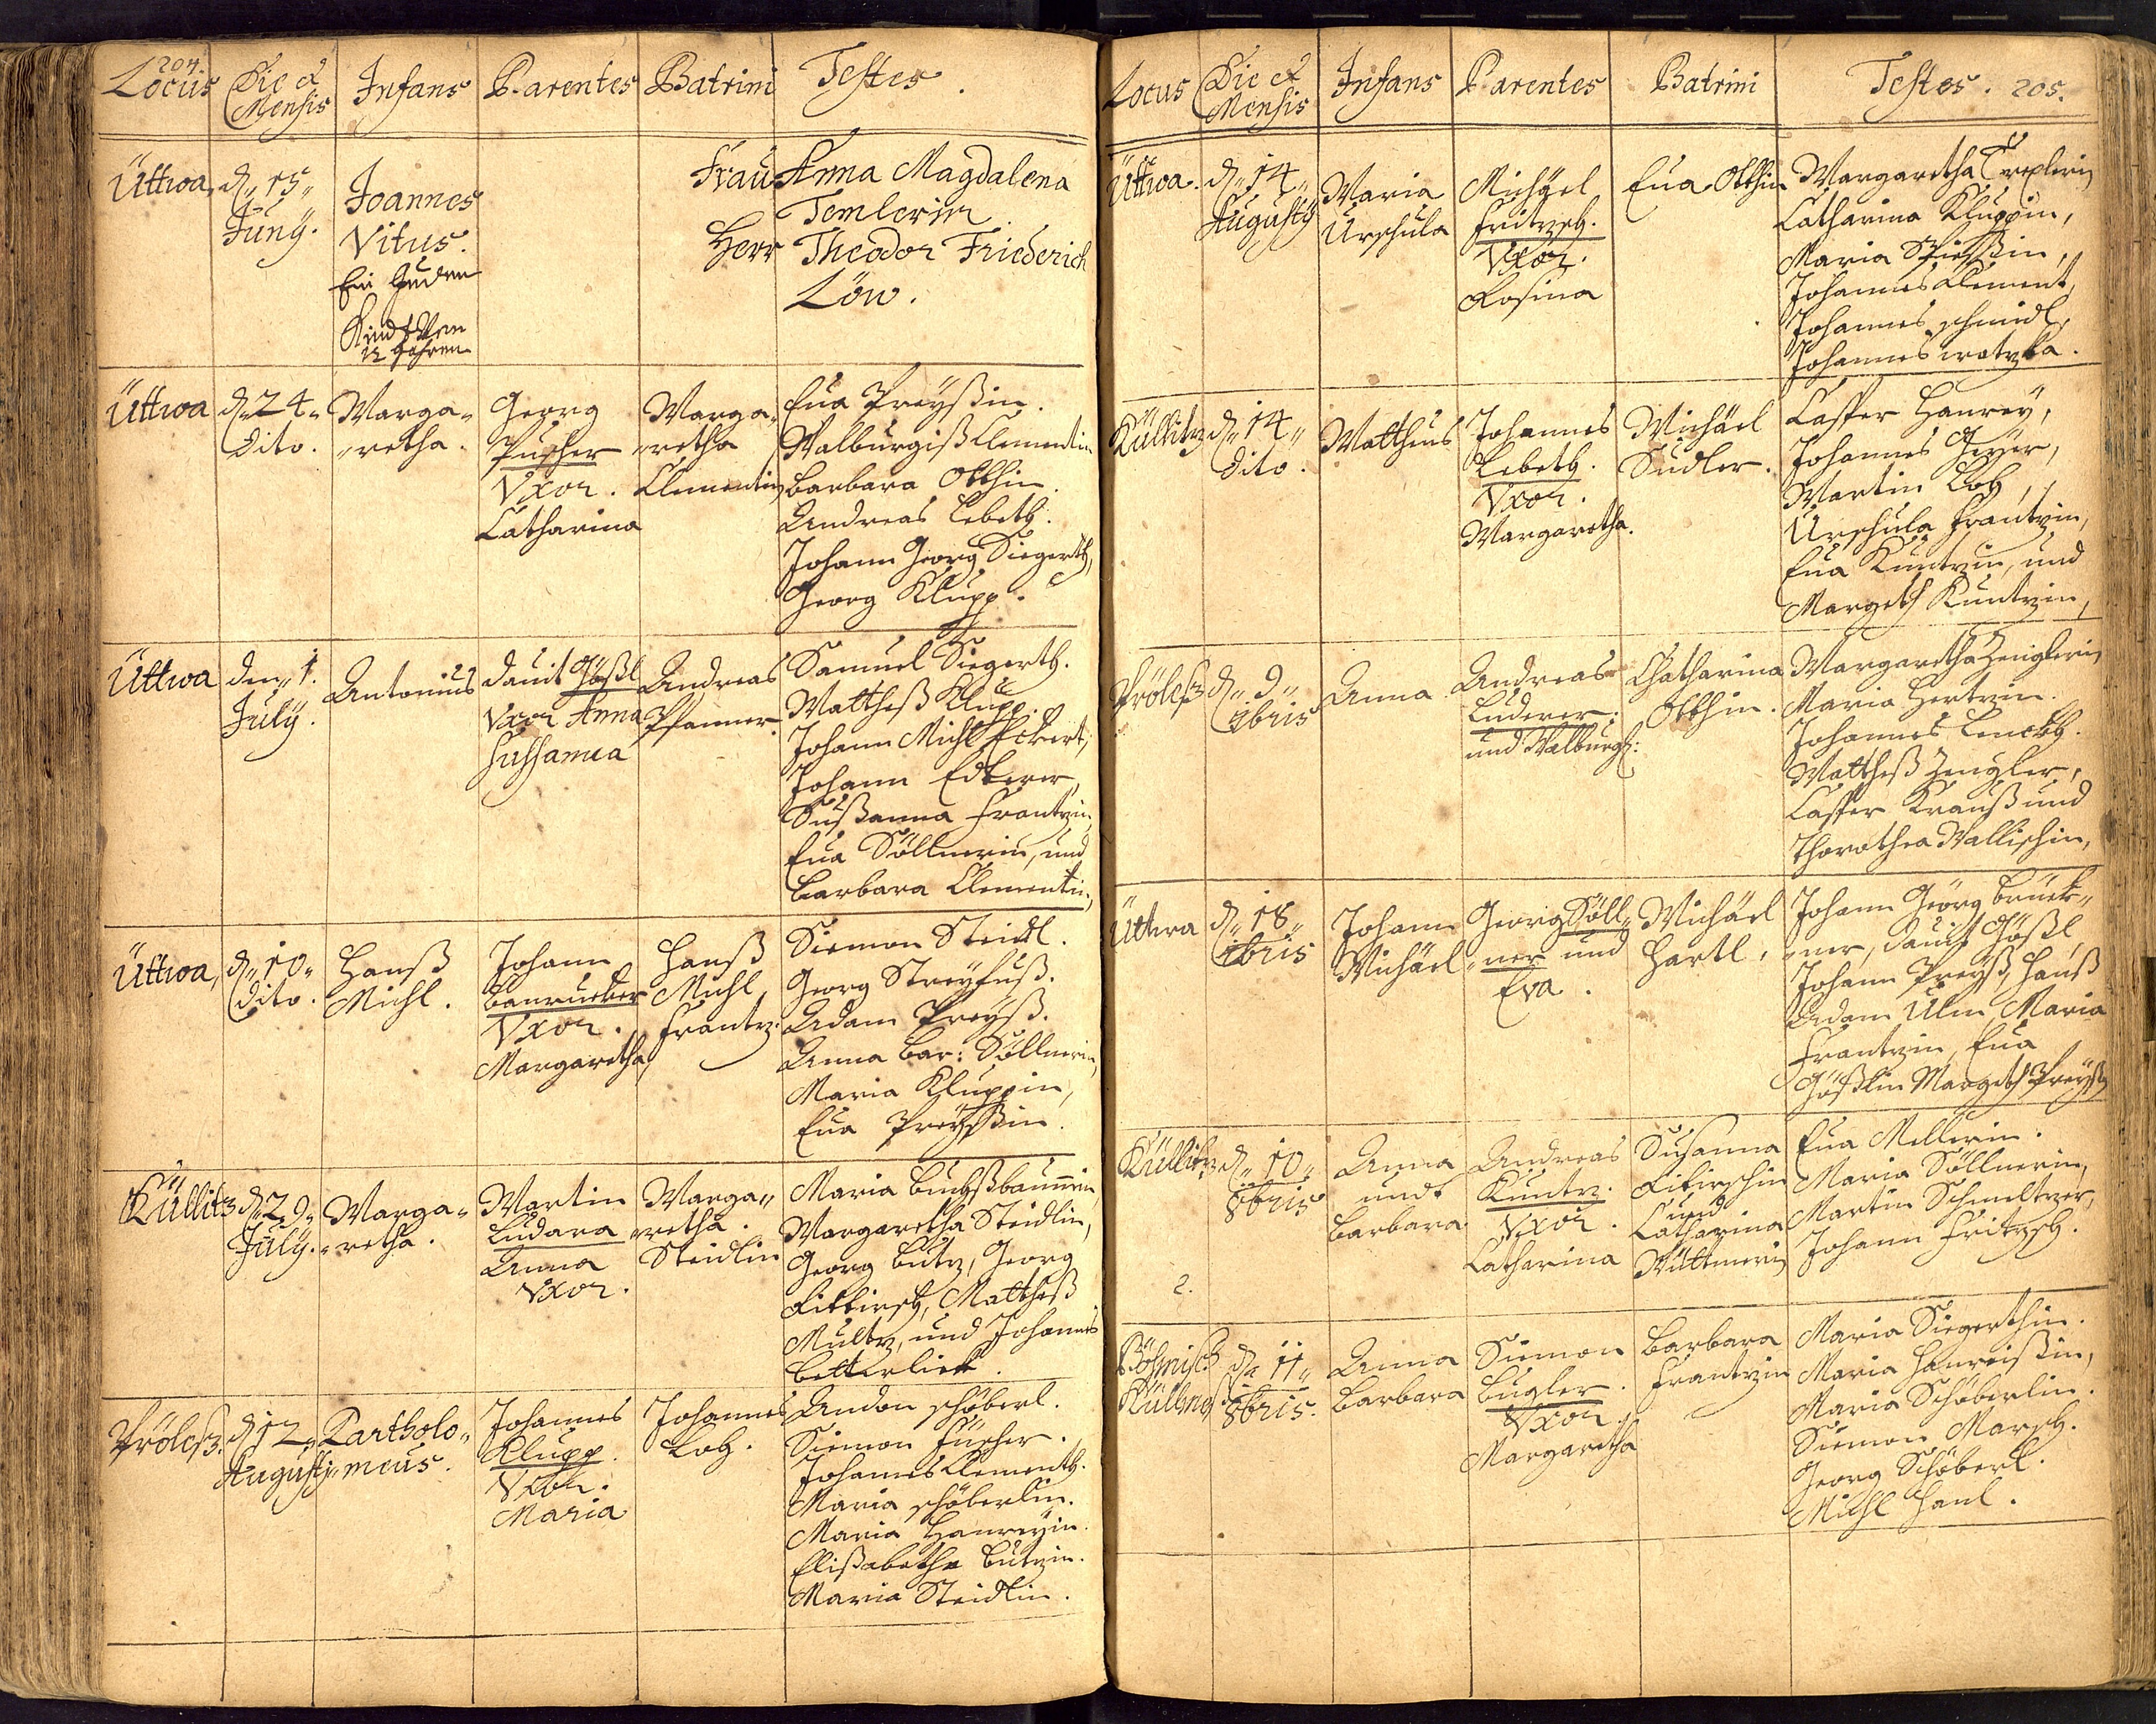 204
Locus Die et Mensis Infans Parentes Patrini Testes.
Üttwa, d. 15 Juny. Joannes Vitus. Ein Juden Kind Von 12 Jahren
Frau Anna Magdalena
Temlerin
Herr Theodor Friederich
Löw.
Üttwa d. 24. dito. Marga-retha. Georg Puscher Vxor. Catharina Marga-retha Clementin
Eua Preyßin.
Walburgiß Clementin
Barbara Otthin.
Andreas Lebeth.
Johann Georg Siegerth,
Georg Klupp.
Üttwa den 1. July. Antonius Dauit Gößl Vxor Anna Sussanna Andreas Pfanner.
Samuel Siegerth.
Mattheß Klupp.
Johann Michl Eckert,
Johann Edterer,
Sußanna Frantzin,
Eua Söllnerin, und
Barbara Clementin,
Üttwa, d. 10. dito. Hanß Michl. Johann Banrucker Vxor. Margaretha Hanß Michl Frantz.
Siemon Steidl.
Georg Streyfuß.
Adam Preyß.
Anna Bar: Söllnerin,
Maria Kluppin,
Eua Preyßin.
Küllitz d. 29. July. Marga-retha. Martin Ludara Anna Vxor. Marga-retha. Steidlin
Maria Buchßbaumin,
Margaretha Steidlin,
Georg Butz, Georg
Mattheß
Multz, und Johannes
Betterlick.
Prölesz. d. 12. Augusty Bartholo-meus. Johannes Klupp. Vxor. Maria Johannes Loh.
Andon schöberl.
Siemon
Johannes Clementh.
Maria schöberlin.
Maria Hanreyin.
Elisabetha Butzin.
Maria Steidlin.
Locus Die et Mensis Infans Parentes Patrini Testes. 205.
Üttwa. d. 14 Augusty Maria Urschula Michäel Fritzsch. Vxor. Rosina Eua Otthin
Margaretha
Catharina Kluppin,
Maria
Johannes Clement,
Johannes schmidl,
Johannes wotzka.
Küllitz d. 14 dito. Mattheus Johannes Lebeth. Vxor. Margaretha. Michäel Sudler.
Casper Hanrey,
Johannes Geyer,
Martin Loh,
Urschula Frantzin,
Eua Kuntzin, und
Margeth Kuntzin,
Prölesz d. 9 7bris Anna Andreas Luderer. und Walburgh: Chatharina Otthin.
Margaretha Zenglerin
Maria Hertzin.
Johannes Lenckh.
Mattheß Zengler,
Casper Krauß und
Thorothea Wallischin,
Üttwa d. 18 7bris Johann Michäel Georg Söll-ner und Eva. Michäel Hartl,
Johann Georg Bruck-
ner, Dauit Gößl,
Johann Preyß, Hanß
Adam Ulm, Maria
Frantzin, Eua
Gößlin Margeth Preyß
Küllitz d. 10 8bris Anna undt Barbara Andreas Kuntz. Vxor. Catharina Susanna und Catharina
Eua Mellerin.
Maria Söllnerin,
Martin Schmeltzer,
Johann Fritzsch.
2.
Böhmisch d. 11 8bris. Anna Barbara Siemon Bugler. Vxor. Margaretha Barbara Frantzin
Maria Siegerthin.
Maria Hanreißin,
Maria Schöberlin.
Siemon Marsch.
Georg Schöberl.
Michl Hanl.